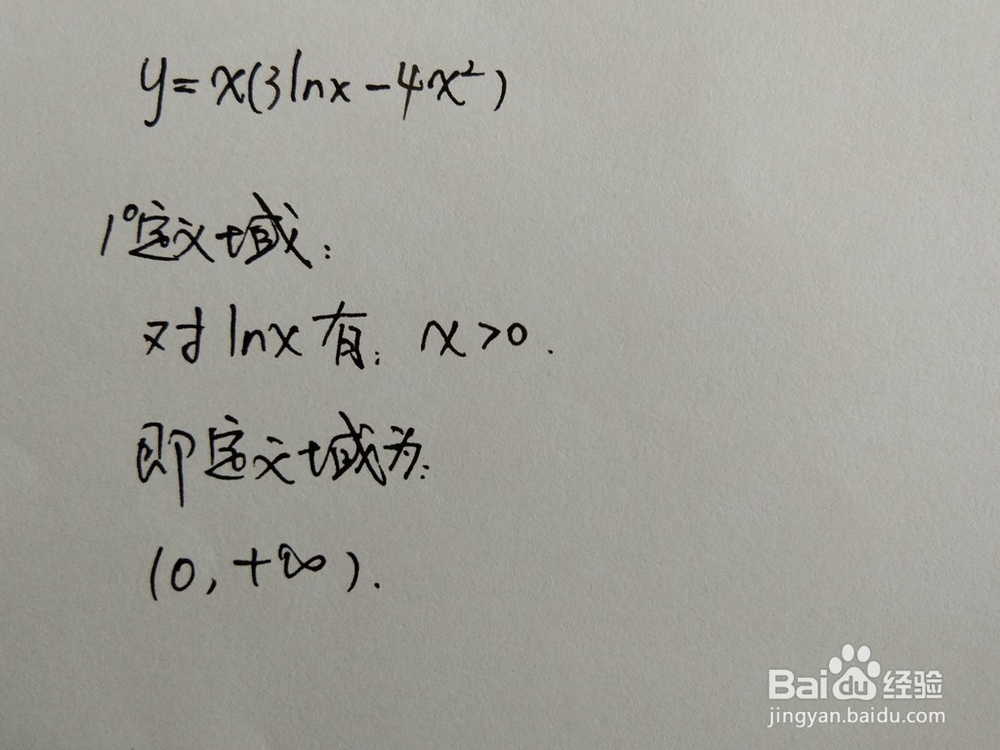 y=x(3lnx-4x²)
1°定义域:
对lnx有: x>0.
即定义域为:
(0,+∞).
Baidu经验
jingyan.baidu.com